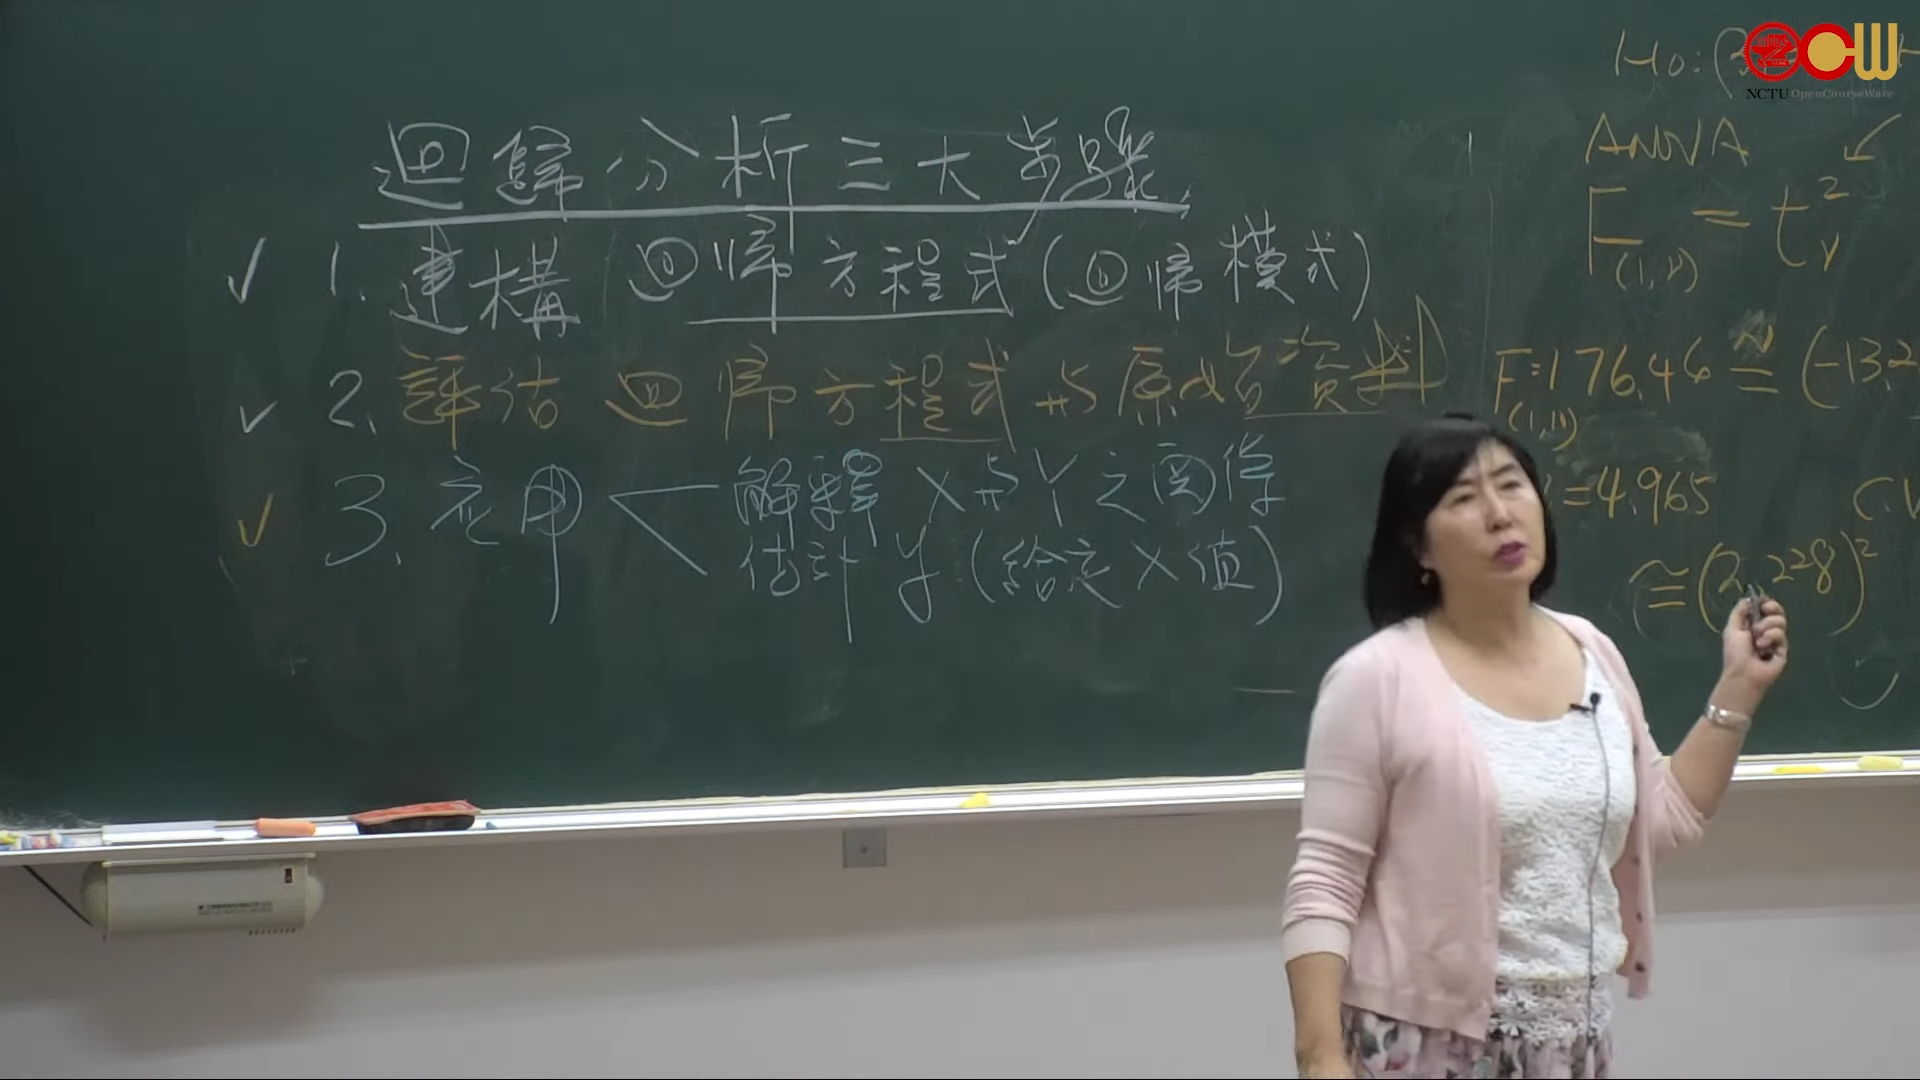 迴歸分析三大步驟
1. 建構 迴帰方程式(迴帰模式)
2. 評估 迴帰方程式与原始資料
3. 應用 解釋 X与Y之関係
估計 y (給定X值)
H0:
ANOVA
F(1,ν) = tν²
F(1,10)=176.46 ≅ (-13.2
=4.965
C.V
≅(2.228)²
NCTU OpenCourseWare